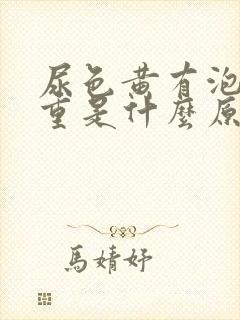 尿色黄有泡
重是什麼原
馬婧妤